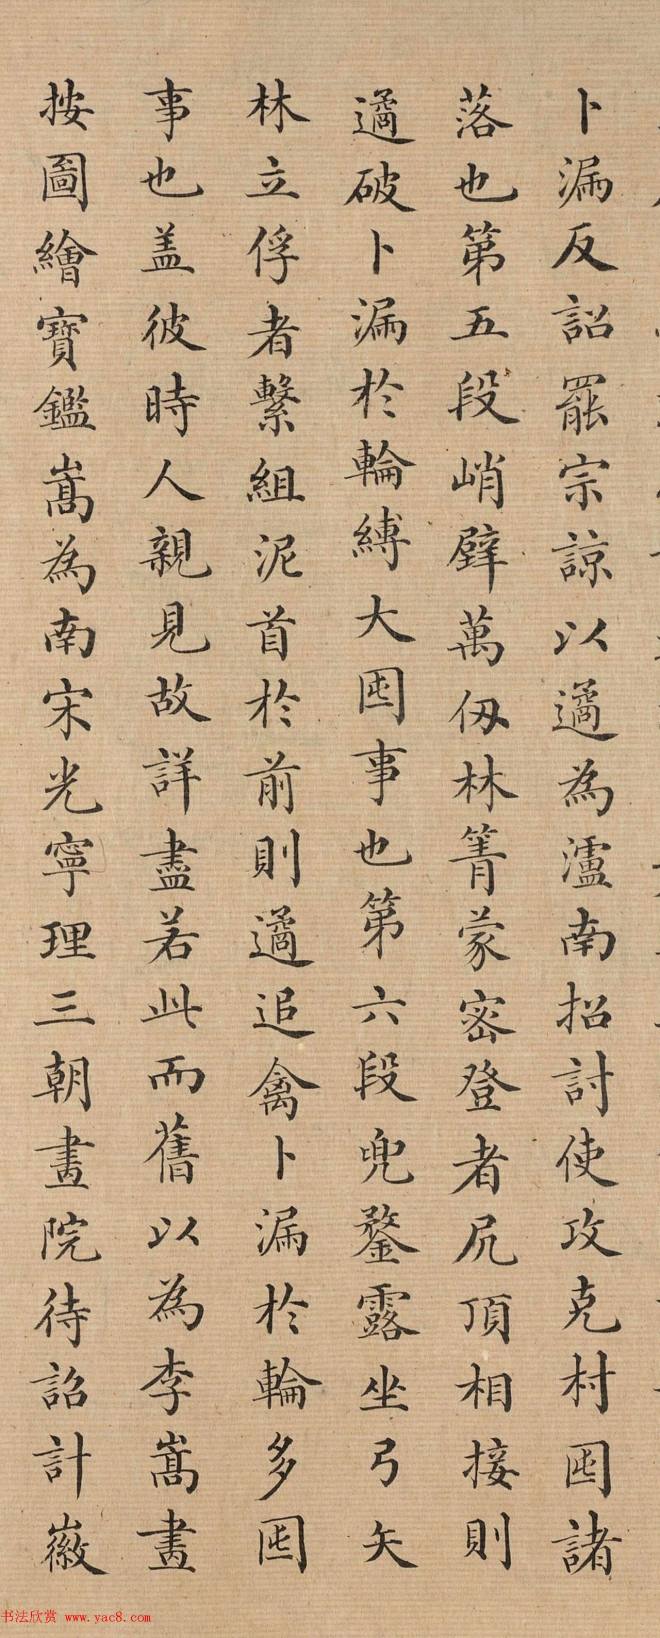 卜漏反詔罷宗諒以遹為瀘南招討使攻克村囤諸
落也第五段峭壁萬仞林箐蒙密登者尻頂相接則
遹破卜漏於輪縛大囤事也第六段兜鍪露坐弓矢
林立俘者繫組泥首於前則遹追禽卜漏於輪多囤
事也盖彼時人親見故詳盡若此而舊以為李嵩畫
按圖繪寶鑑嵩為南宋光寧理三朝畫院待詔計徽
书法欣赏 www.yac8.com